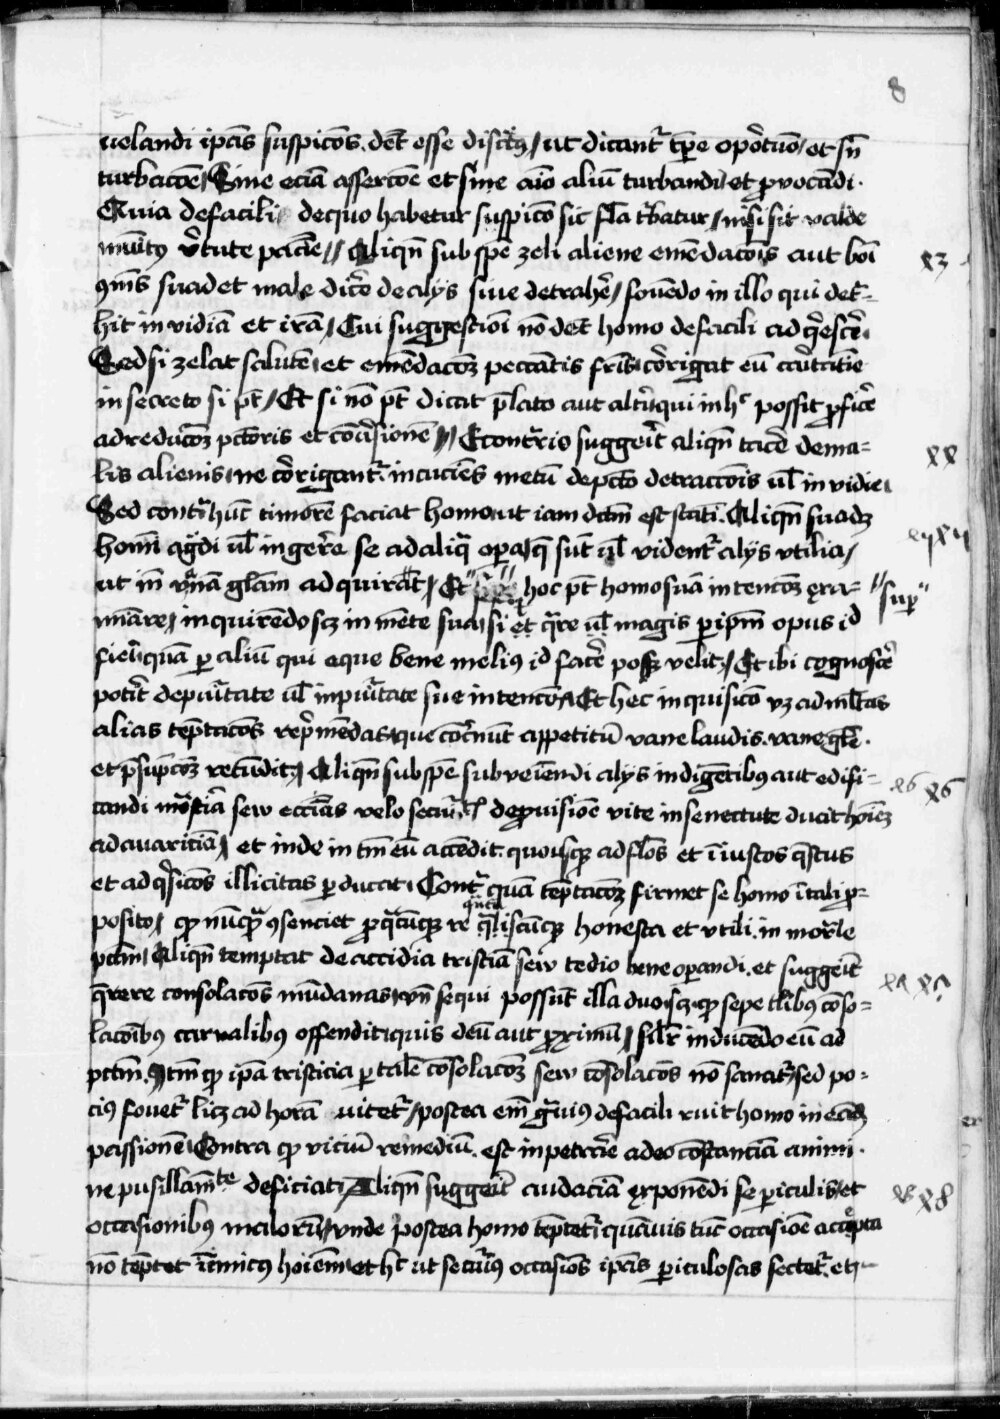 8
uelandi ip̄as suspicōs. det̄ esse discret9, ut dicant᷑ tp̄e opo᷑tuo, et sn̄
turbacōe, Sine eciā assercōe et sine aīo aliū turbandi, et ꝓvocādi.
Quia defacili dequo habetur suspicō sic turbatur, nisi sit valde
munit9 v᷑tute pacīe, Aliqn̄ sub spe zeli aliene emēdacōis aut boī
ꝯmīs suadet male dic᷑e de alijs siue detrah᷑e, fouēdo in illo qui det᷑-
hit invidiā et irā, Cui suggestiōi nō det̄ homo defacili adq᷑escē᷑e,
Sed si zelat salutē, et emēdacōꝫ peccātis fris̄ co᷑rigat eū
in secreto si pt̄, Et si nō pt̄ dicat p̄lato aut alt᷑i, qui in hͨ possit ꝓfic᷑e
ad reducōꝫ pctōris et cōu᷑sionē, Econt᷑rio sugger᷑it aliqn̄ tac᷑e dema-
lis alienis, ne co᷑rigant᷑, incuciēs metū de pctō detraccōis ul̄ invidie,
Sed cont᷑ hūc timorē faciat homo, ut iam dc̄m est statī. Aliqn̄ suadꝫ
homī ag᷑di ul̄ inger᷑e se ad aliq᷑ opa, q̄ sūt ul̄ vident᷑ alijs vtilia,
ut in vanā glām adquirat, Et hoc pt̄ homo suā intencōꝫ exa-
mināre, inquirēdo scꝫ in mēte sua, si et q᷑re ul̄ magis ꝑ ip̄m opus id
fieri, quā ꝑ aliū qui eque bene meli9 id fac᷑e possꝫ velit, Et ibi cognosc᷑e
pot᷑it de pu᷑itate ul̄ inpu᷑itate sue intencōis, Et hec inquisicō vꝫ ad mltas
alias tēptacōs rep᷑mēdas, que cōc᷑nūt appetitū vane laudis. vane gle᷑.
et p᷑supcōꝫ retūdit, Aliqn̄ sub spe subveiēndi alijs indigētibus aut edifi-
candi monast᷑ia sew ecclīas velo deꝓuisiōe vite in senectute ducit hoīeꝫ
ad auariciā, et inde in tm̄ eū accēdit. quousqꝫ ad flōs et iniustos q̄stus
et ad q᷑sicōs illicitas ꝑducat, Cont᷑ quā tēptacōꝫ firmet se homo ītali ꝓ-
posito, qꝫ nūq᷑ ꝯsenciet ꝓ q᷑cūqꝫ re q᷑liscūqꝫ honesta et vtili. in mor᷑le
pctm̄, Aliqn̄ temptat de accidia tristiciā sew tedio bene operandi. et sugger᷑it
q᷑rere consolacōs mūdanas, vn̄ sequi possūt illa duo, scꝫ qꝫ sepe tlībus cōso-
lacōībus carnalibus offendit quis deū aut ꝓximū, silr᷑ inducēdo eū ad
pctm̄. Itm̄ qꝫ ip̄a tristicia ꝑ talē consolacōꝫ sew cōsolacōs nō sanat᷑, sed po-
cius fouet᷑ licꝫ ad horā uitet᷑, postea em̄ g᷑uius defacili ruit homo in eādē
passionē, Contra qꝫ viciū remediū. est inpetrare a deo cōstanciā animi.
ne pusillamīte deficiat, Aliqn̄ sugger᷑it audaciā exponēdi se ꝑiculis, et
occasionibus malorū, vnde postea homo tēptet᷑, quāuis tūc occasiōe accepta
nō tēptet inimicus hoīem, et hͨ ut secur᷑us occasiōs ip̄as ꝑiculosas sectet᷑. et
x3
xx
"sup"
x6 x6
x8